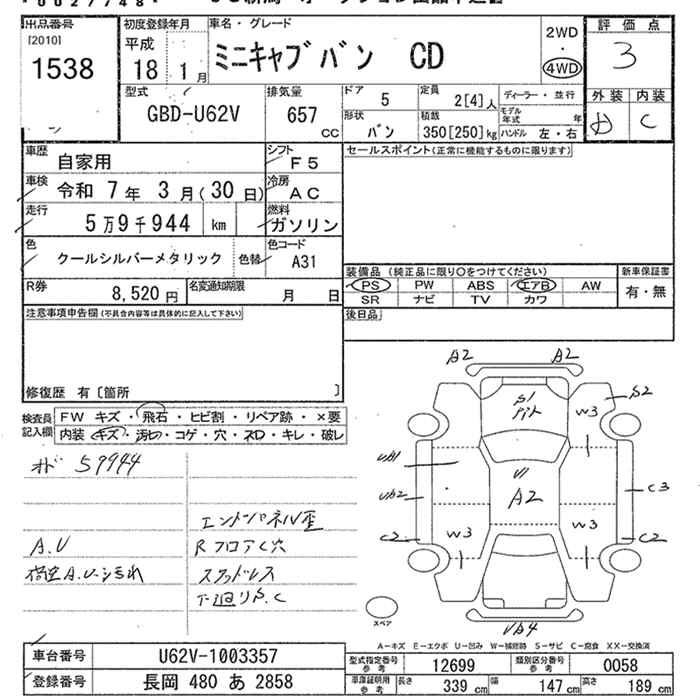 出品番号
[2010]
1538
初度登録年月
平成
18 1月
車名・グレード
ミニキャブバン CD
2WD
・
4WD
評価点
3
外装 内装
D C
型式
GBD-U62V
排気量
657 cc
ドア 5
定員 2[4]人
形状 バン
積載 350[250]kg
ディーラー・並行
モデル年式 年
ハンドル 左・右
車歴 自家用
シフト F5
車検 令和 7年 3月(30日)
冷房 AC
走行 5万9千944 km
燃料 ガソリン
色 クールシルバーメタリック 色替
色コード A31
R券 8,520円
名変通知期限 月 日
セールスポイント(正常に機能するものに限ります)
装備品(純正品に限り○をつけてください)
PS PW ABS エアB AW
SR ナビ TV カワ
新車保証書
有・無
後日品
注意事項申告欄(不具合内容等は具体的に記入して下さい)
修復歴 有〔箇所 〕
検査員記入欄
FW キズ・飛石・ヒビ割・リペア跡・×要
内装・キズ・汚れ・コゲ・穴・ネロ・キレ・破レ
オド 59944
エンドパネル歪
A.U
RフロアC穴
スタッドレス
下廻りS.C
A2 A2
S1
S2
W3
W3
U1
A2
C3
C2
W3
W3
C2
スペア
A-キズ E-エクボ U-凹み W-補修跡 S-サビ C-腐食 XX-交換済
車台番号 U62V-1003357
登録番号 長岡 480 あ 2858
型式指定番号 参考 12699
類別区分番号 参考 0058
車庫証明用 参考 長さ 339 cm 幅 147 cm 高さ 189 cm